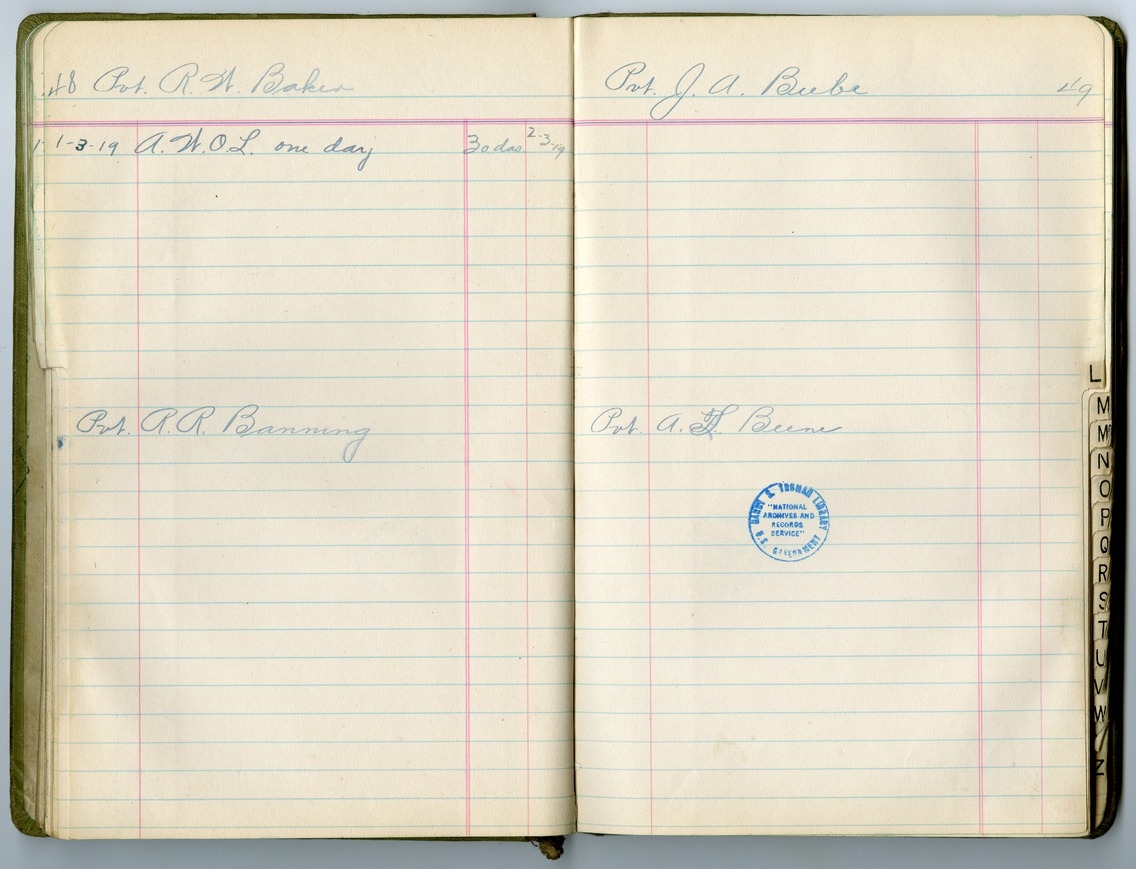 48 Pvt. R. W. Baker
1-3-19 A.W.O.L. one day 30 das. 2-3-19
Pvt. R. R. Banning
Pvt. J. A. Beebe 49
Pvt. A. F. Beene
HARRY S. TRUMAN LIBRARY
"NATIONAL
ARCHIVES AND
RECORDS
SERVICE"
U.S. GOVERNMENT
L
M
Mc
N
O
P
Q
R
S
T
U
V
W
Y
Z